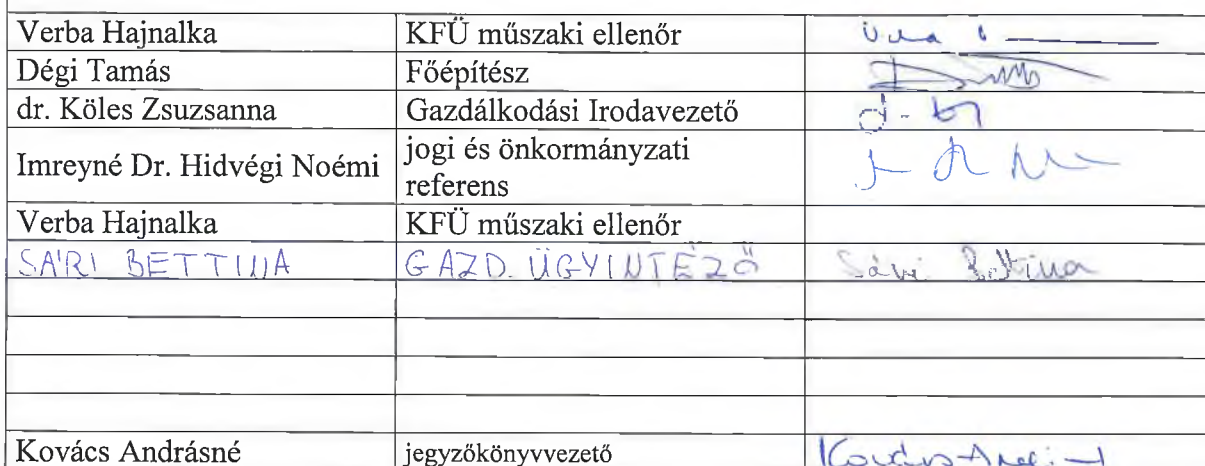 Verba Hajnalka KFÜ műszaki ellenőr
Dégi Tamás Főépítész
dr. Köles Zsuzsanna Gazdálkodási Irodavezető
Imreyné Dr. Hidvégi Noémi jogi és önkormányzati
referens
Verba Hajnalka KFÜ műszaki ellenőr
SÁRI BETTINA GAZD. ÜGYINTÉZŐ Sári Bettina
Kovács Andrásné jegyzőkönyvvezető